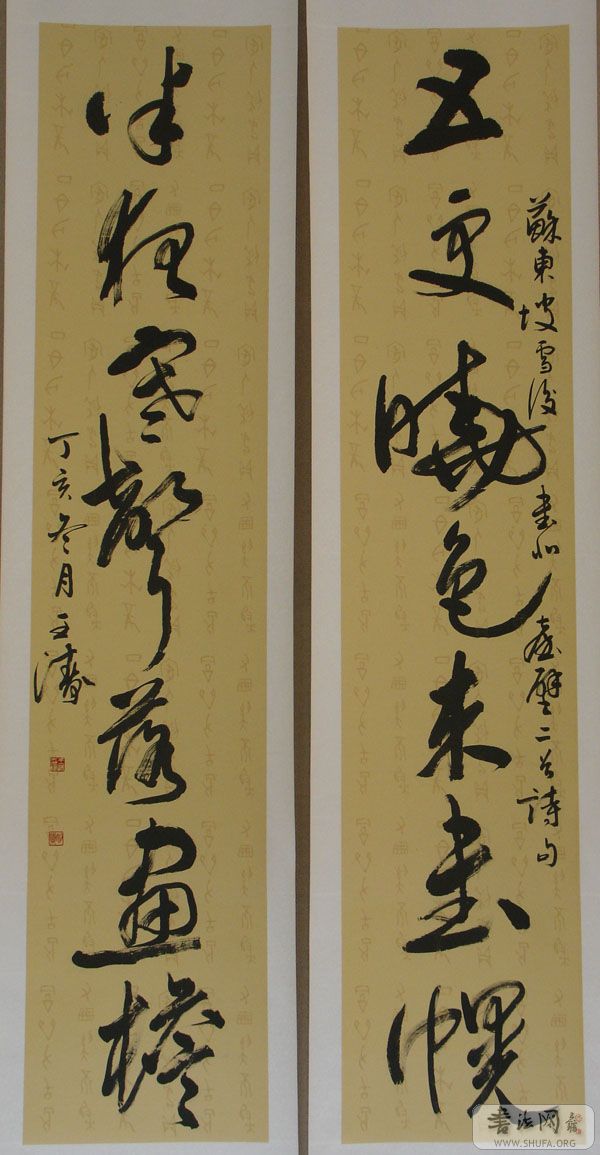 五更曉色来書幌
蘇東坡雪後書北臺壁二首詩句
半夜寒聲落畫檐
丁亥冬月王濤
書法网
WWW.SHUFA.ORG